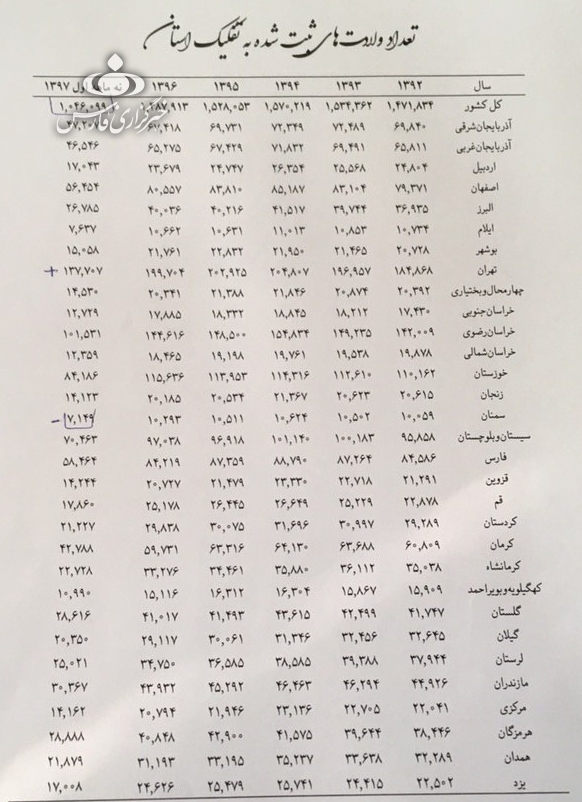 تعداد ولادت‌های ثبت شده به تفکیک استان
خبرگزاری فارس
سال ۱۳۹۲ ۱۳۹۳ ۱۳۹۴ ۱۳۹۵ ۱۳۹۶ نه ماهه اول ۱۳۹۷
کل کشور ۱,۴۷۱,۸۳۴ ۱,۵۳۴,۳۶۲ ۱,۵۷۰,۲۱۹ ۱,۵۲۸,۰۵۳ ۱,۲۸۷,۹۱۳ ۱,۰۴۶,۰۹۹
آذربایجان‌شرقی ۶۹,۸۴۰ ۷۲,۴۸۹ ۷۲,۳۴۹ ۶۹,۷۳۱
آذربایجان‌غربی ۶۵,۸۱۱ ۶۹,۴۹۱ ۷۱,۸۳۲ ۶۷,۴۲۹ ۶۵,۲۷۵ ۴۶,۵۴۶
اردبیل ۲۴,۸۰۴ ۲۵,۵۶۸ ۲۶,۳۵۴ ۲۴,۷۴۷ ۲۳,۶۷۹ ۱۷,۰۴۳
اصفهان ۷۹,۳۷۱ ۸۳,۱۰۴ ۸۵,۱۸۷ ۸۳,۸۱۰ ۸۰,۵۵۷ ۵۶,۴۵۴
البرز ۳۶,۹۳۵ ۳۹,۷۴۴ ۴۱,۵۱۷ ۴۰,۲۱۶ ۴۰,۰۳۶ ۲۶,۷۸۵
ایلام ۱۰,۷۳۴ ۱۰,۸۵۳ ۱۱,۰۱۳ ۱۰,۶۳۱ ۱۰,۶۶۲ ۷,۶۳۷
بوشهر ۲۰,۷۲۸ ۲۱,۴۶۵ ۲۱,۹۵۰ ۲۲,۸۳۲ ۲۱,۷۶۱ ۱۵,۰۵۸
تهران ۱۸۴,۸۶۸ ۱۹۶,۹۵۷ ۲۰۴,۸۰۷ ۲۰۲,۹۲۵ ۱۹۹,۷۰۴ ۱۳۷,۷۰۷ +
چهارمحال‌وبختیاری ۲۰,۳۹۲ ۲۰,۸۷۴ ۲۱,۸۴۶ ۲۱,۳۸۸ ۲۰,۳۴۱ ۱۴,۵۳۰
خراسان‌جنوبی ۱۷,۴۳۰ ۱۸,۲۱۲ ۱۸,۸۴۵ ۱۸,۳۳۲ ۱۷,۸۸۵ ۱۲,۷۲۹
خراسان‌رضوی ۱۴۲,۰۰۹ ۱۴۹,۲۳۵ ۱۵۴,۸۳۴ ۱۴۸,۵۰۰ ۱۴۴,۶۱۶ ۱۰۱,۵۳۱
خراسان‌شمالی ۱۹,۸۷۸ ۱۹,۵۳۸ ۱۹,۷۶۱ ۱۹,۱۹۸ ۱۸,۴۶۵ ۱۲,۳۵۹
خوزستان ۱۱۰,۱۶۲ ۱۱۲,۶۱۰ ۱۱۴,۳۱۶ ۱۱۳,۹۵۳ ۱۱۵,۶۳۶ ۸۴,۱۸۶
زنجان ۲۰,۶۱۵ ۲۰,۶۲۳ ۲۱,۳۶۷ ۲۰,۵۳۴ ۲۰,۱۸۵ ۱۴,۱۲۳
سمنان ۱۰,۰۵۹ ۱۰,۵۰۲ ۱۰,۶۲۴ ۱۰,۵۱۱ ۱۰,۲۹۳ ۷,۱۴۹ -
سیستان‌وبلوچستان ۹۵,۸۵۸ ۱۰۰,۱۸۳ ۱۰۱,۱۴۰ ۹۶,۹۱۸ ۹۷,۰۳۸ ۷۰,۴۶۳
فارس ۸۴,۵۸۶ ۸۷,۲۶۴ ۸۸,۷۹۰ ۸۷,۳۵۹ ۸۴,۲۱۹ ۵۸,۴۶۴
قزوین ۲۱,۲۹۱ ۲۲,۷۱۸ ۲۳,۳۳۰ ۲۱,۴۷۹ ۲۰,۷۲۷ ۱۴,۲۴۴
قم ۲۲,۸۷۸ ۲۵,۲۲۹ ۲۶,۶۴۹ ۲۶,۴۴۵ ۲۵,۱۷۸ ۱۷,۸۶۰
کردستان ۲۹,۲۸۹ ۳۰,۹۹۷ ۳۱,۶۹۶ ۳۰,۰۷۵ ۲۹,۸۳۸ ۲۱,۲۲۷
کرمان ۶۰,۸۰۹ ۶۳,۶۸۸ ۶۴,۱۳۰ ۶۳,۳۱۶ ۵۹,۷۳۱ ۴۲,۷۸۸
کرمانشاه ۳۵,۰۳۸ ۳۶,۱۱۲ ۳۵,۸۸۰ ۳۴,۴۶۱ ۳۳,۲۷۶ ۲۲,۷۲۸
کهگیلویه‌وبویراحمد ۱۵,۹۰۹ ۱۵,۸۶۷ ۱۶,۳۰۴ ۱۶,۳۱۲ ۱۵,۱۱۶ ۱۰,۹۹۰
گلستان ۴۱,۷۴۷ ۴۲,۴۹۹ ۴۳,۶۱۵ ۴۱,۴۹۳ ۴۱,۰۱۷ ۲۸,۶۱۶
گیلان ۳۲,۶۴۵ ۳۲,۴۵۶ ۳۱,۳۴۶ ۳۰,۰۶۱ ۲۹,۱۱۷ ۲۰,۳۵۰
لرستان ۳۷,۹۴۴ ۳۹,۳۸۸ ۳۸,۵۸۵ ۳۶,۵۸۵ ۳۴,۷۵۰ ۲۵,۰۲۱
مازندران ۴۴,۹۲۶ ۴۶,۲۹۴ ۴۶,۴۶۳ ۴۵,۲۹۲ ۴۳,۹۳۲ ۳۰,۳۶۷
مرکزی ۲۲,۰۴۱ ۲۲,۷۰۵ ۲۳,۱۳۶ ۲۱,۹۴۶ ۲۰,۷۹۴ ۱۴,۱۶۲
هرمزگان ۳۸,۴۴۶ ۳۹,۶۴۴ ۴۱,۵۷۵ ۴۲,۹۰۰ ۴۰,۸۴۸ ۲۸,۸۸۸
همدان ۳۲,۲۸۹ ۳۳,۶۳۸ ۳۵,۲۳۷ ۳۳,۱۹۵ ۳۱,۱۹۳ ۲۱,۸۷۹
یزد ۲۲,۵۰۲ ۲۴,۴۱۵ ۲۵,۷۴۱ ۲۵,۴۷۹ ۲۴,۶۲۶ ۱۷,۰۰۸